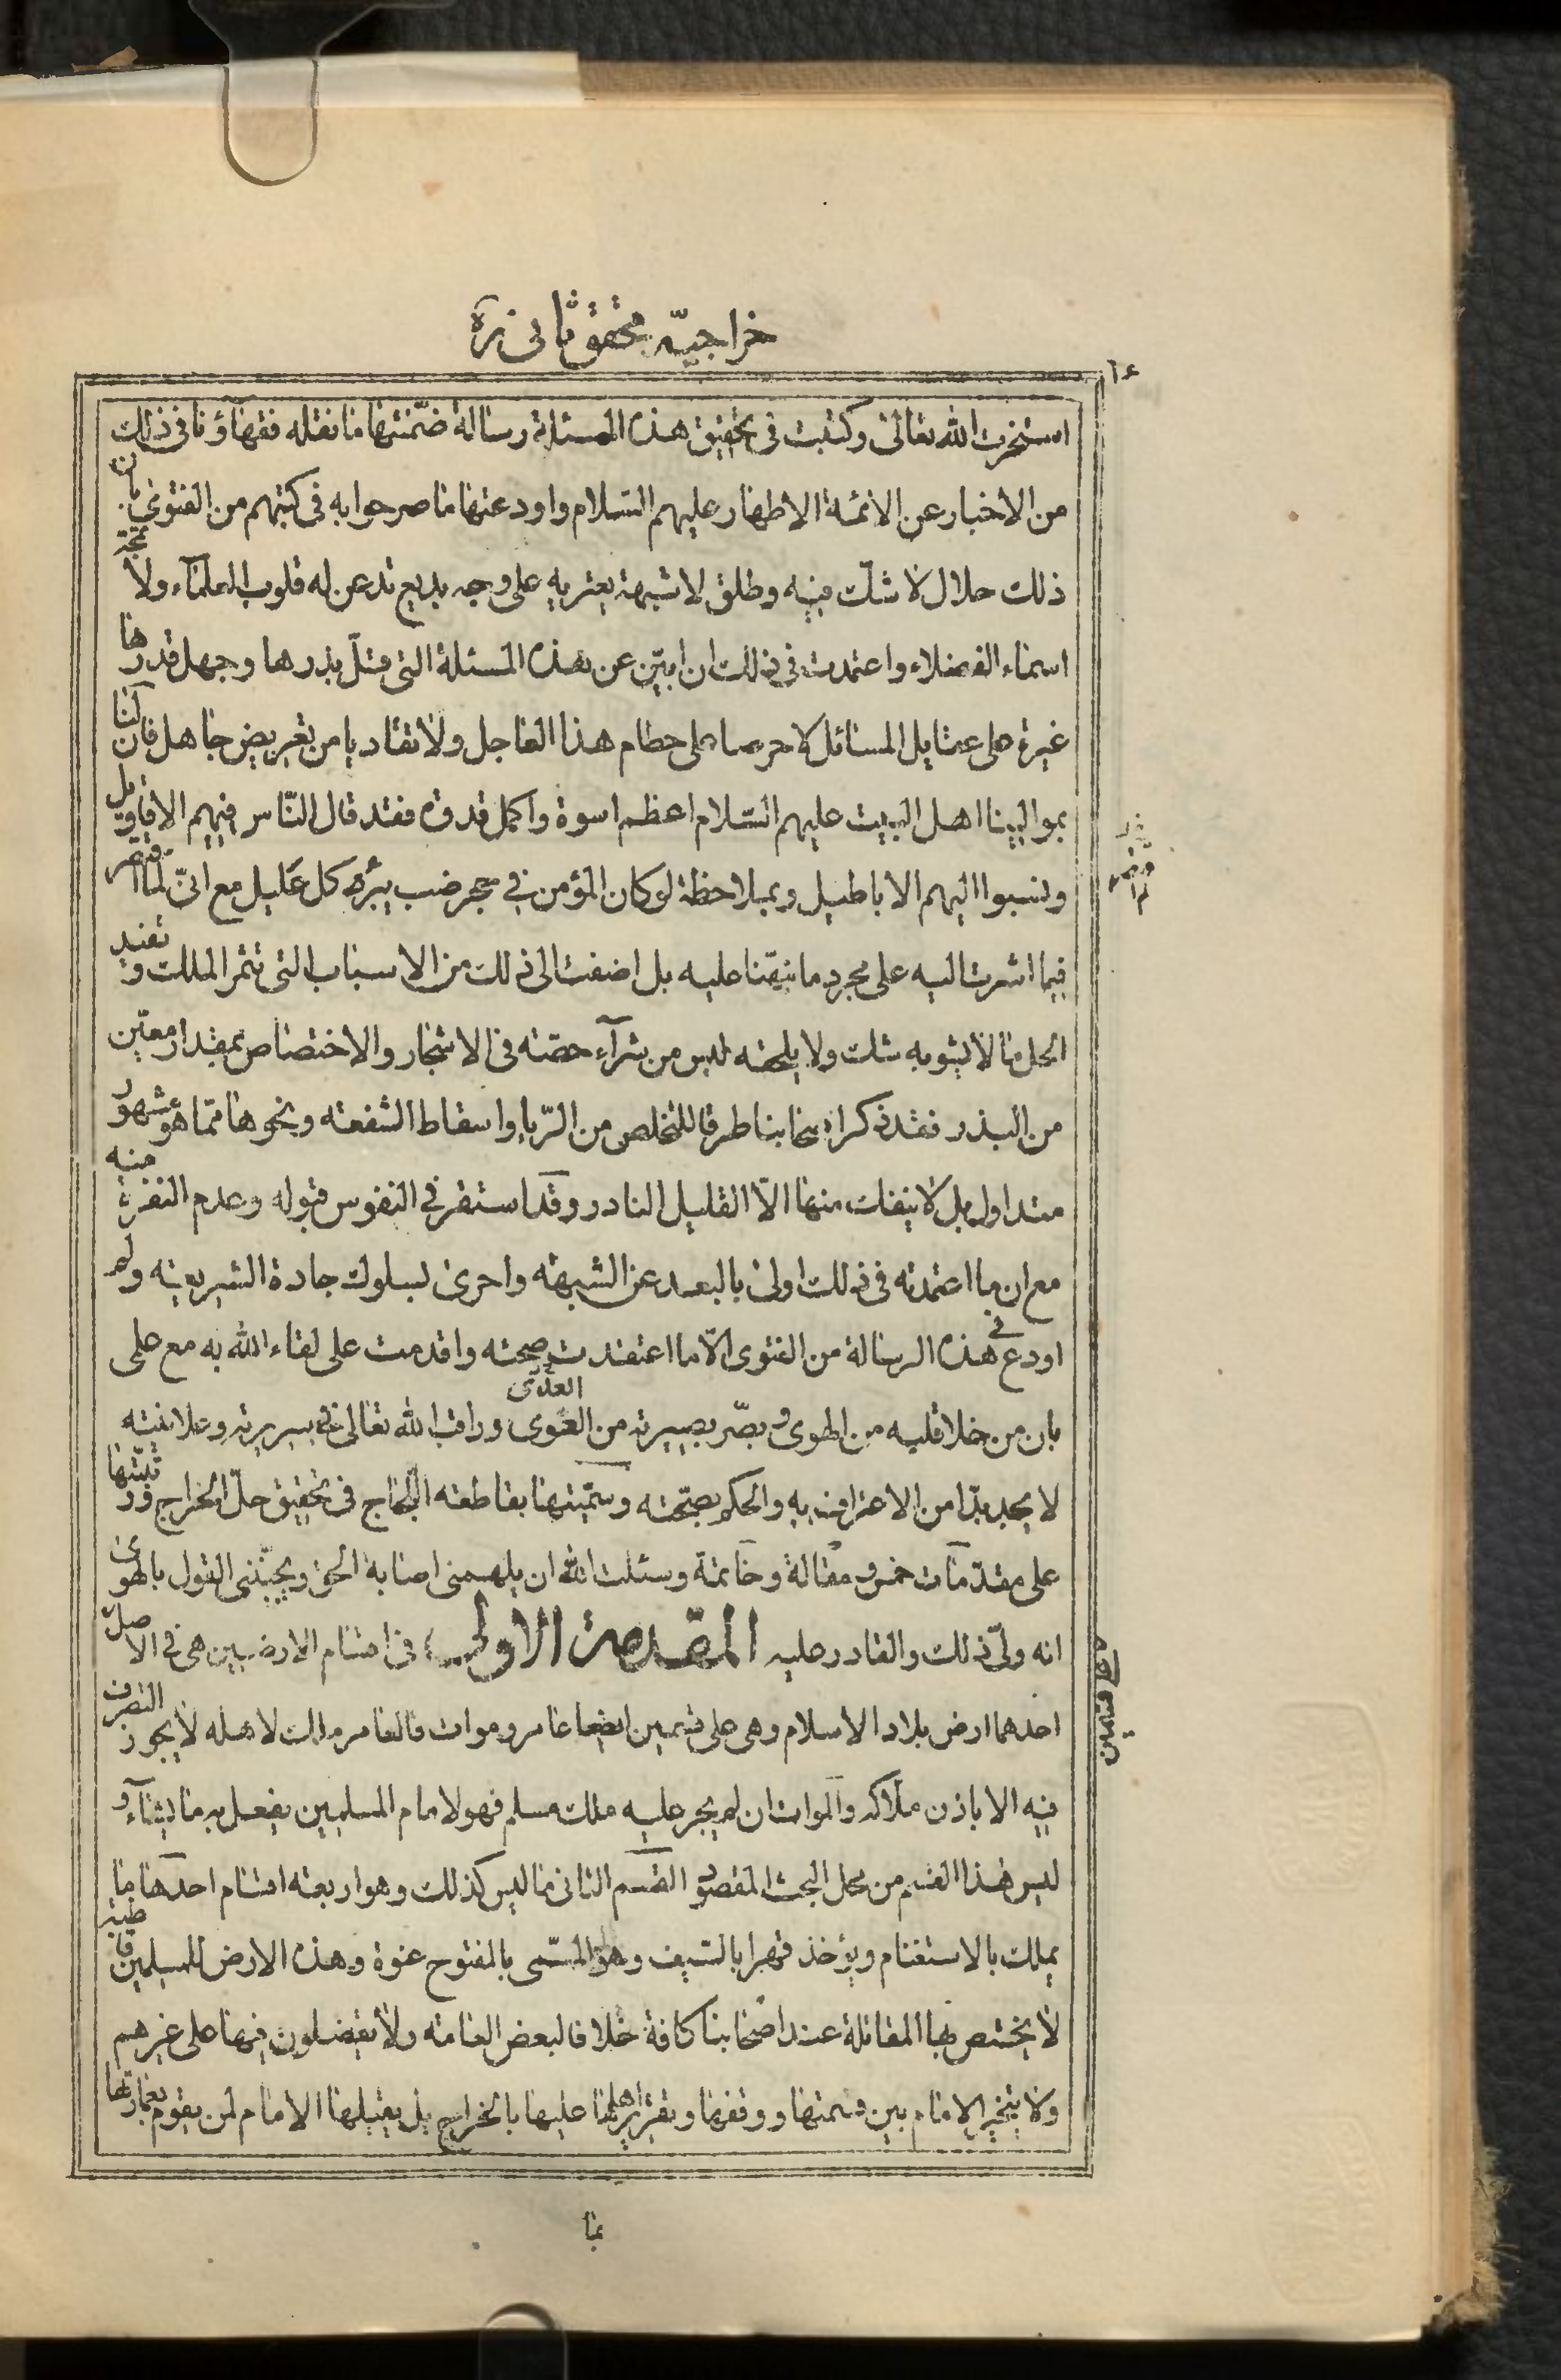 خراجيّه محقق ثانى ره
استخرت الله تعالى وكتبت فى تحقيق هذه المسئلة رسالة ضمّنتها ما نقله فقهاؤنا فى ذلك
من الاخبار عن الائمة الاطهار عليهم السّلام واودعتها ما صرحوا به فى كتبهم من الفتوى بان
ذلك حلال لا شك فيه وطلق لا شبهة يعتريه على وجه بديع تذعن له قلوب العلماء ولا تمجّه
اسماء الفضلاء واعتمدت فى ذلك ان ابيّن عن هذه المسئلة التى قلّ بذرها وجهل قدرها
غيرة على عقايل المسائل لا حرصا على حطام هذا العاجل ولا تفاديا من تعريض جاهل فان لنا
بموالينا اهل البيت عليهم السّلام اعظم اسوة واكمل قدوة فقد قال النّاس فيهم الاقاويل
ونسبوا اليهم الاباطيل وبملاحظة لو كان المؤمن فى جحر ضب يبرد كل غليل مع انّى لم اقتصر
فيما اشرت اليه على مجرد ما نبّهنا عليه بل اضفت الى ذلك من الاسباب التى تثمر الملك وتفيد
الحل ما لا يشوبه شك ولا يلحقه لبس من شرآء حصّته فى الاشجار والاختصاص بمقدار معيّن
من البذر فقد ذكر اصحابنا طرقا للتخلص من الرّبا واسقاط الشفعة ونحوها ممّا هو مشهور
متداول بل لا ينفك منها الّا القليل النادر وقد استقر فى النفوس قبوله وعدم النفرة منه
مع ان ما اعتمدته فى ذلك اولى بالبعد عن الشبهة واحرى لسلوك جادة الشريعة ولم
اودع فى هذه الرسالة من الفتوى الّا ما اعتقدت صحته واقدمت على لقاء الله به مع علمى
بان من خلا قلبه من الهوى وبصّر بصيرته من الغوى وراقب الله تعالى فى سريرته وعلانيته
لا يجد بدّا من الاعتراف به والحكم بصحّته وسمّيتها بقاطعة اللّجاج فى تحقيق حلّ الخراج ورتبّتها
على مقدّمات خمس ومقالة وخاتمة وسئلت الله ان يلهمنى اصابة الحق ويجنّبنى القول بالهوى
انه ولىّ ذلك والقادر عليه المقدمة الاولى فى اقسام الارضين هى فى الاصل
على قسمين
احدهما ارض بلاد الاسلام وهى على قسمين ايضا عامر وموات فالعامر ملك لاهله لا يجوز التصرف
فيه الا باذن ملّاكه والموات ان لم يجر عليه ملك مسلم فهو لامام المسلمين يفعل به ما يشآء و
ليس هذا القسم من محل البحث المقصود القسم الثانى ما ليس كذلك وهو اربعة اقسام احدها ما
يملك بالاستغنام ويؤخذ قهرا بالسّيف وهو المسّمى بالمفتوح عنوة وهذه الارض للمسلمين قاطبة
لا يختص بها المقاتلة عند اصحابنا كافة خلافا لبعض العامه ولا يفضلون فيها على غيرهم
ولا يتخير الامام بين قسمتها ووقفها وتقرير اهلها عليها بالخراج بل يقبلها الامام لمن يقوم بعمارتها
بما